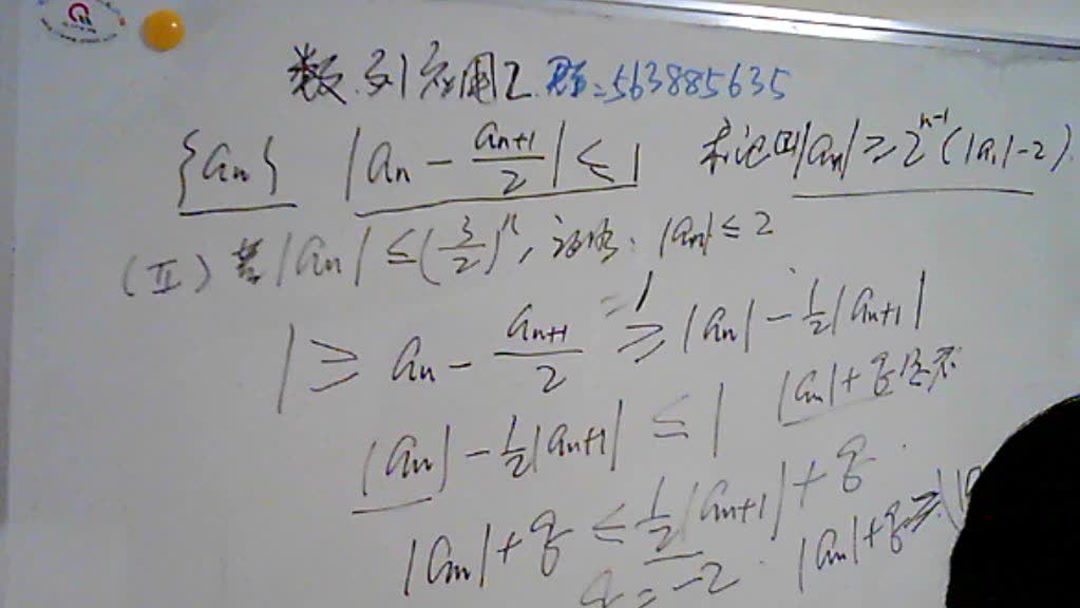 数列应用2.群:563885635
{aₙ} |aₙ - aₙ₊₁/2| ≤ 1 求证(I)|aₙ| ≥ 2ⁿ⁻¹(|a₁|-2)
(Ⅱ) 若|aₙ| ≤ (3/2)ⁿ, 证明: |aₙ| ≤ 2
1 ≥ aₙ - aₙ₊₁/2 ≥ |aₙ| - 1/2|aₙ₊₁|
|aₙ| - 1/2|aₙ₊₁| ≤ 1 |aₙ|+q
|aₙ|+q ≤ 1/2|aₙ₊₁|+q
q = -2. |aₙ|+q ≥